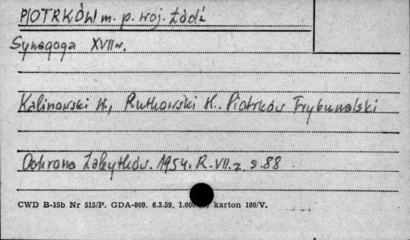 PIOTRKÓW m. p. woj. Łódź
Synagoga XVII w.
Kalinowski H., Rutkowski H. Piotrków Trybunalski
Ochrona Zabytków. 1954. R. VII. z. s. 88
CWD B-15b Nr 515/P. GDA-809. 6.3.59. 1.000 karton 180/V.